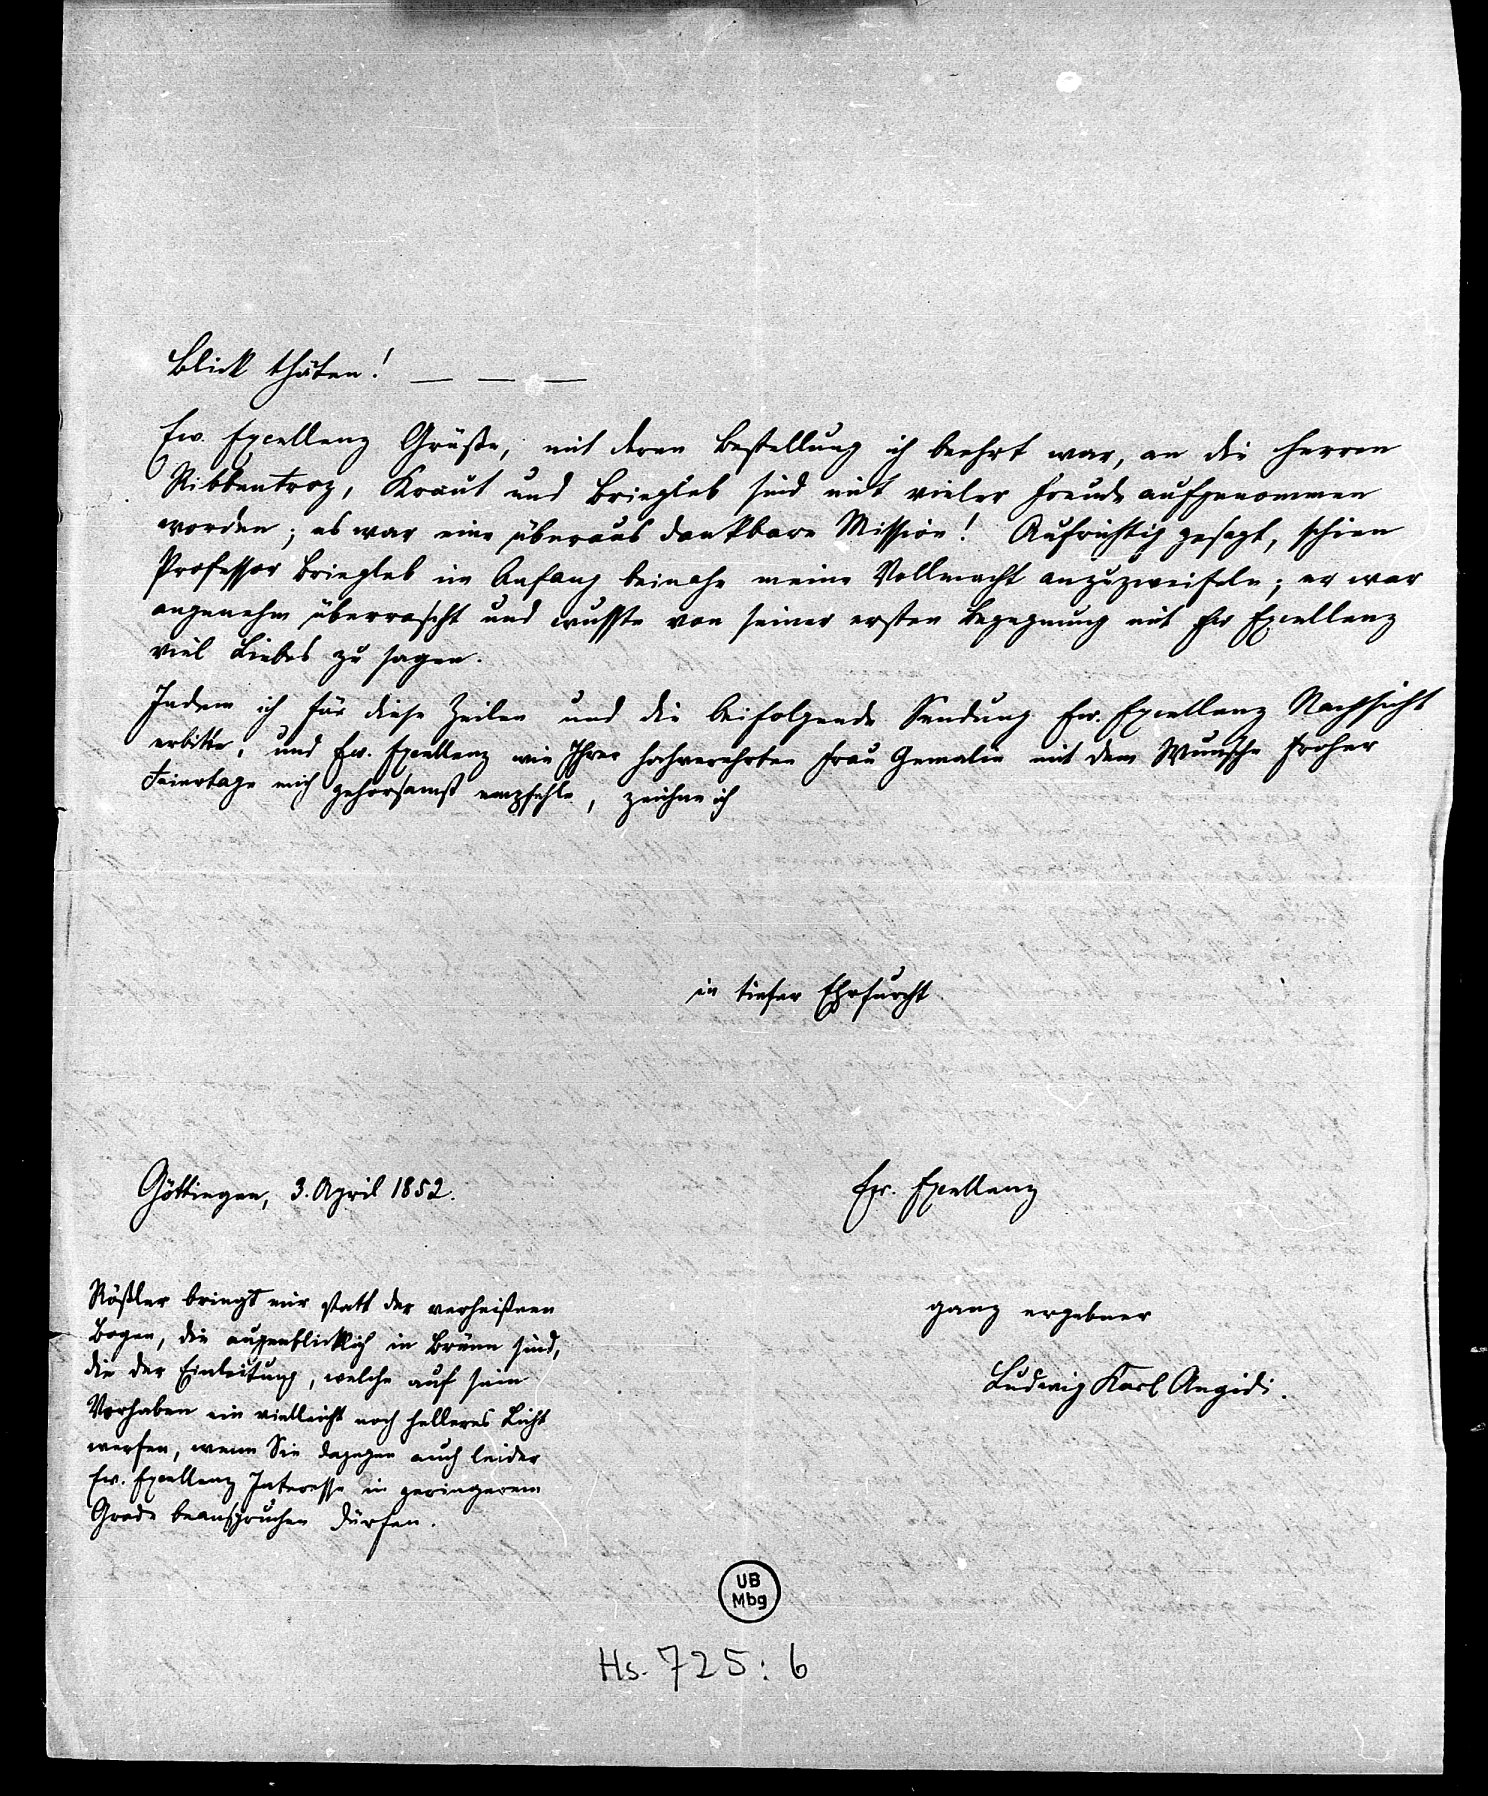 Blick thäten! — — —
Ew. Excellenz Grüße, mit deren Bestellung ich beehrt war, an die Herren
Ribbentrop, Kraut und Briegleb sind mit vieler Freude aufgenommen
worden; es war eine überaus dankbare Mission! Aufrichtig gesagt, schien
Professor Briegleb im Anfang beinahe meine Vollmacht anzuzweifeln; er war
angenehm überrascht und wusste von seiner ersten Begegnung mit Ew Excellenz
viel Liebes zu sagen.
Indem ich für diese Zeilen und die beifolgende Sendung Ew. Excellenz Nachsicht
erbitte, und Ew. Excellenz wie Ihrer hochverehrten Frau Gemalin mit dem Wunsche froher
Feiertage mich gehorsamst empfehle, zeichne ich
in tiefer Ehrfurcht
Göttingen, 3. April 1852.
Ew. Excellenz
ganz ergebner
Ludwig Karl Aegidi.
Rößler bringt mir statt der verheißnen
Bogen, die augenblicklich in Brünn sind,
die der Einleitung, welche auf sein
Vorhaben ein vielleicht noch helleres Licht
werfen, wenn Sie dagegen auch leider
Ew. Excellenz Interesse in geringerem
Grade beanspruchen dürfen.
UB
Mbg
Hs. 725: 6